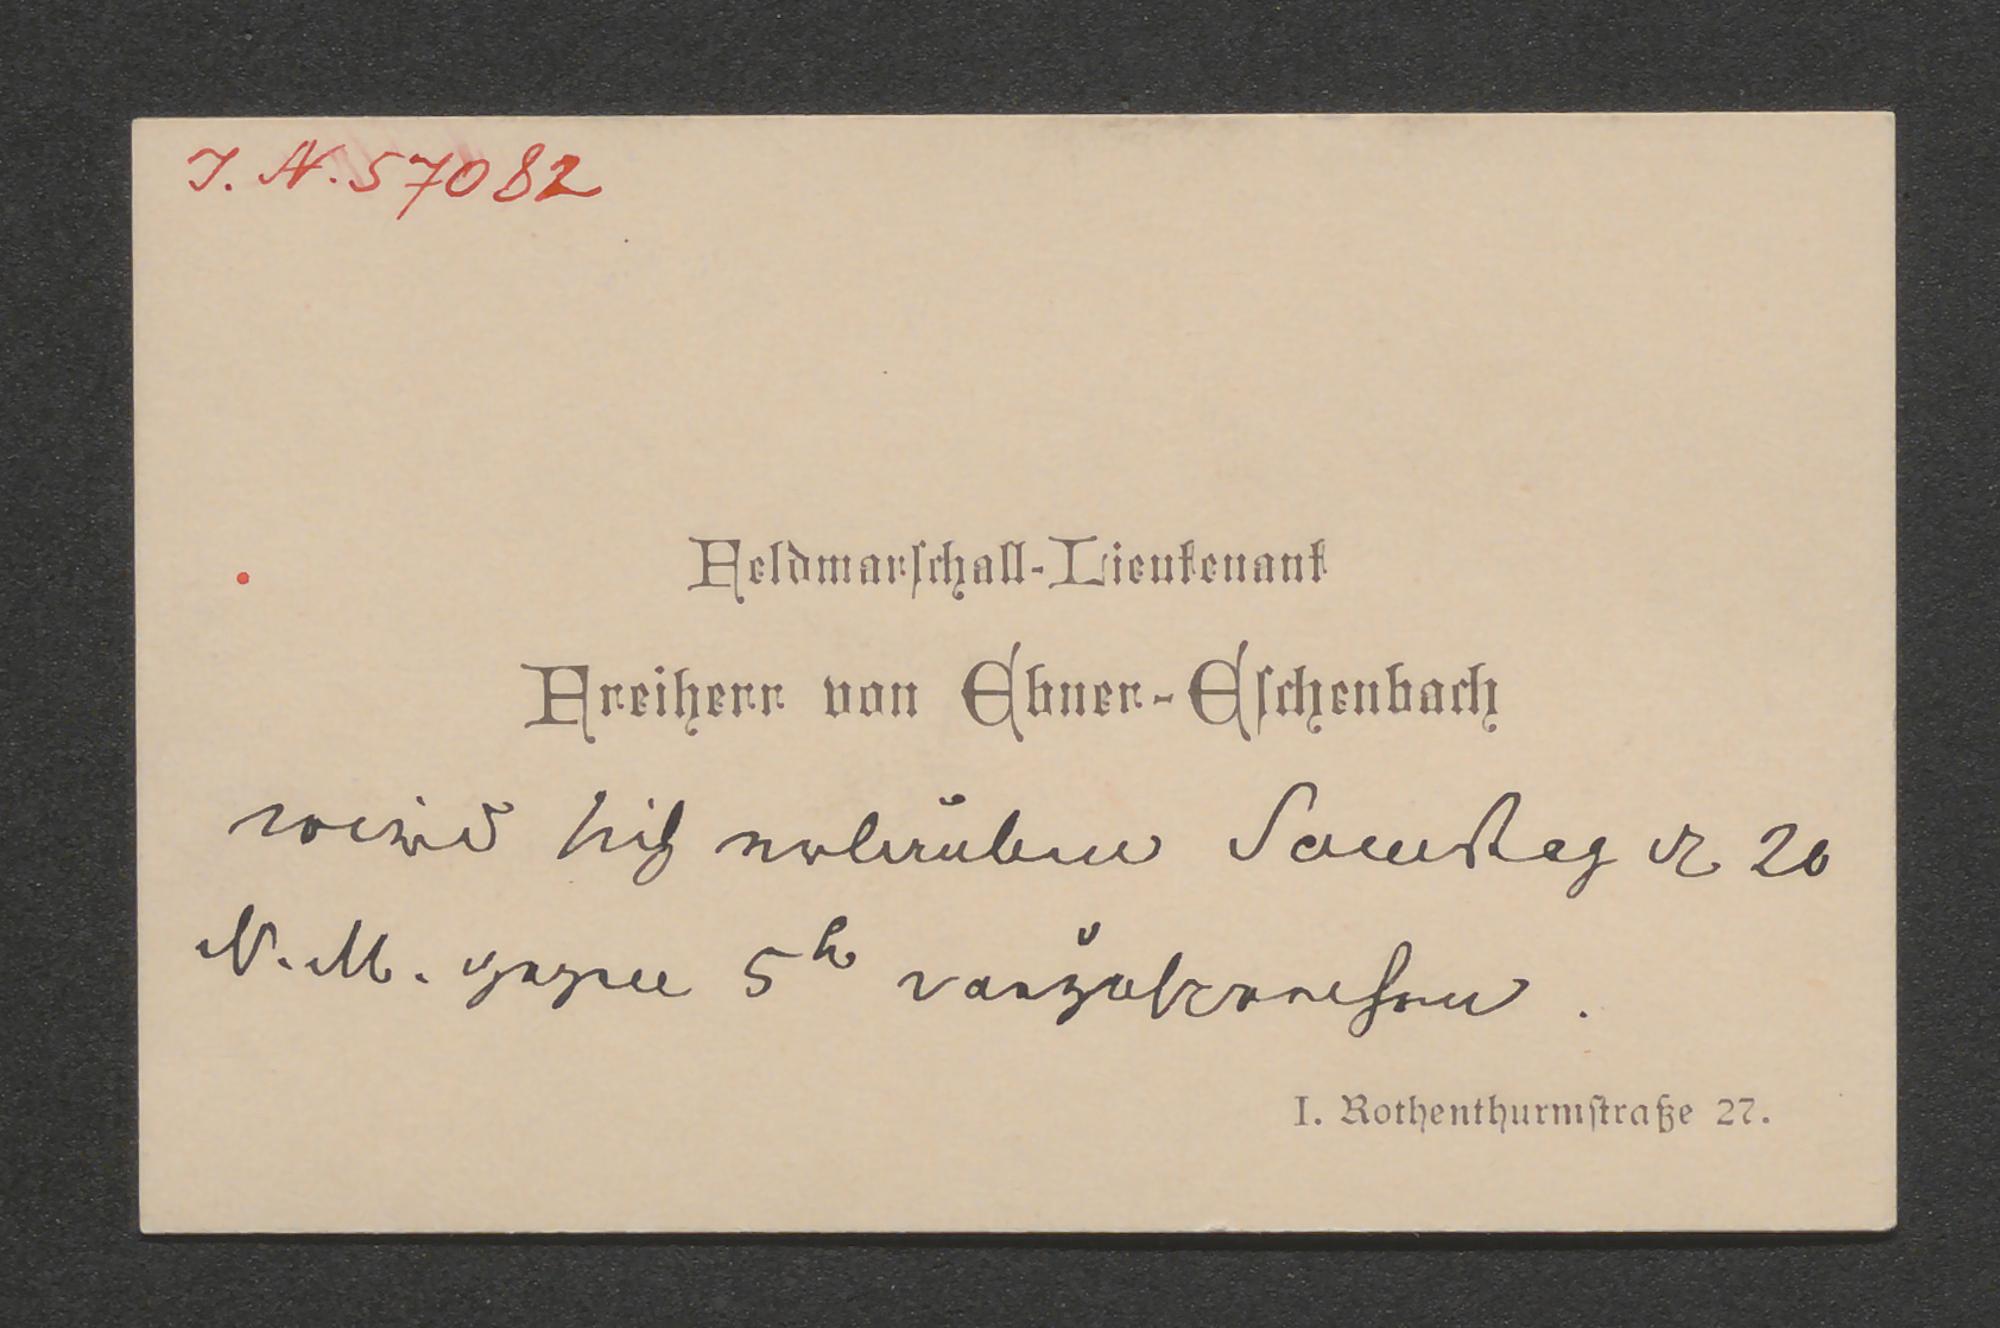 I. N. 57082
Feldmarschall-Lieutenant
Freiherr von Ebner-Eschenbach
wird sich erlauben Samstag d 20
N. M. gegen 5h vorzusprechen.
I. Rothenthurmstraße 27.